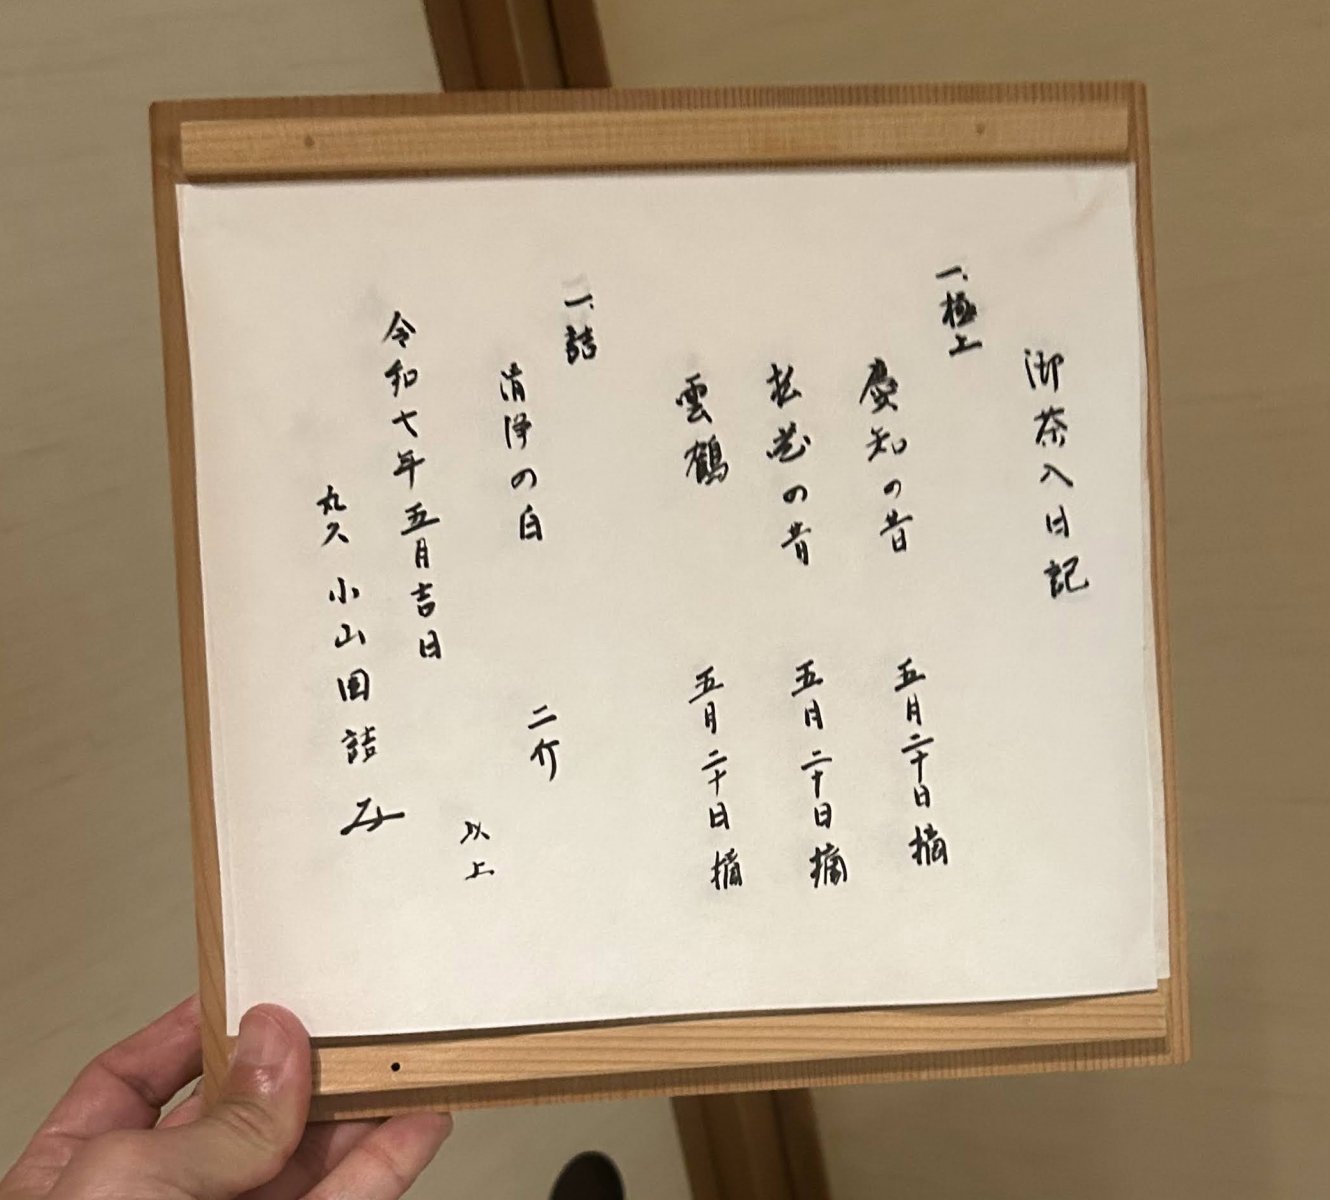 御茶入日記
一、極上
慶知の昔 五月二十日摘
松花の昔 五月二十日摘
雲鶴 五月二十日摘
一、詰
清浄の白 二介
以上
令和七年五月吉日
丸久 小山園詰